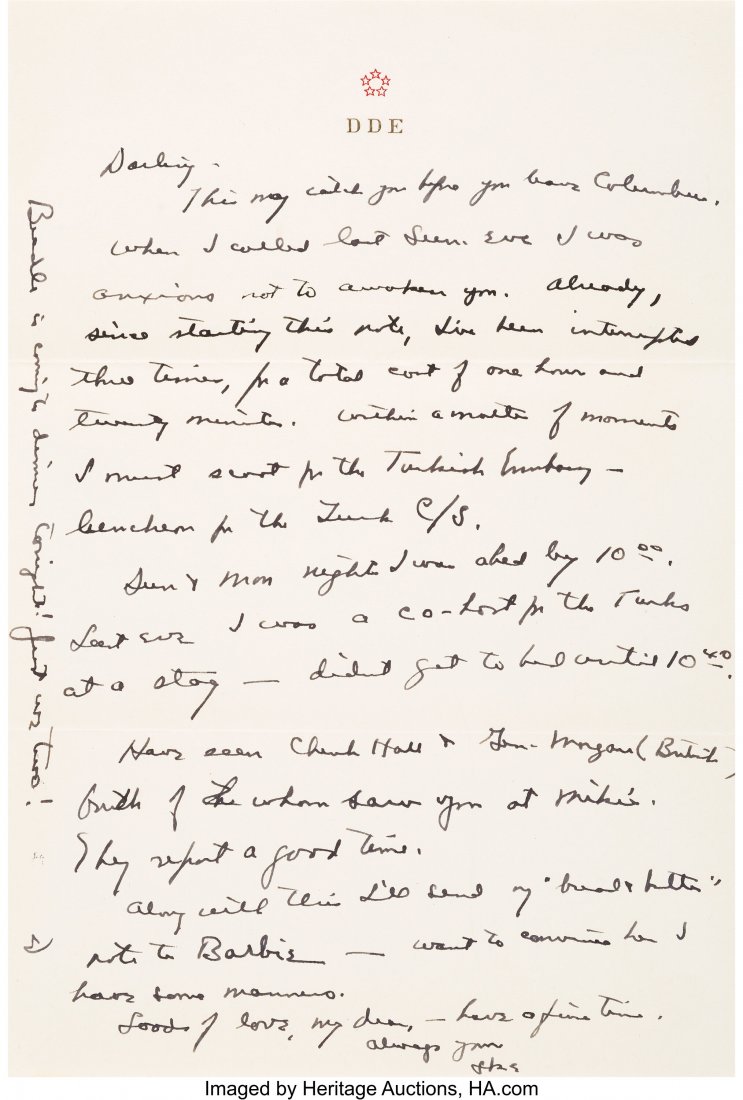 DDE
Darling -
This may catch you before you leave Columbus.
When I called last Sun. eve I was
anxious not to awaken you. Already,
since starting this note, I've been interrupted
three times, for a total cost of one hour and
twenty minutes. Within a matter of moments
I must scoot for the Turkish Embassy -
luncheon for the Turk C/S.
Sun & Mon nights I was abed by 10 00.
Last eve I was a co-host for the Turks
at a stag - didn't get to bed until 10 40.
Have seen Chuck Hall & Gen. Morgan (British)
both of whom saw you at Mike's.
They report a good time.
Along with this I'll send my "bread & butter"
note to Barbie - want to convince her I
have some manners.
Loads of love, my dear, - have a fine time.
Always your
Ike
is coming to dinner tonight! Just we two!
Imaged by Heritage Auctions, HA.com